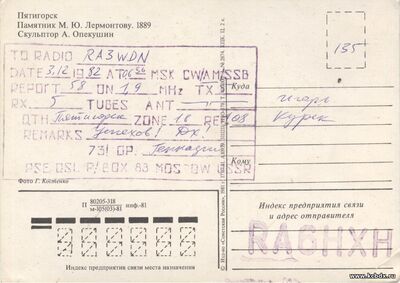 Пятигорск
Памятник М. Ю. Лермонтову. 1889
Скульптор А. Опекушин
135
TO RADIO RA3WDN
DATE 3.12 1982 AT MSK CW/AM/SSB
REPORT 58 ON 1,9 MHz TX
RX 5 TUBES ANT
QTH Пятигорск ZONE 16 RE 108
REMARKS Успехов! Dx!
73! OP. Геннадий
PSE QSL P/BOX 83 MOSTOW SSR
Куда
Игорь
Курск
Кому
Фото Г. Костенко
П 80205-318 инф.-81
м-105(03)-81
Индекс предприятия связи места назначения
Индекс предприятия связи
и адрес отправителя
RA6HXH
www.kcbdx.ru